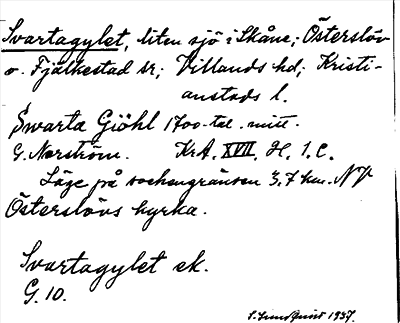 Svartagylet, liten sjö i Skåne; Österslöv
o. Fjälkestad sr; Villands hd; Kristi-
anstads l.
Swarta Giöhl 1700-tal. mitt.
G. Norström. KrA. XVII. H. 1. C.
Läge på sockengränsen 3,7 km. NV
Österslövs kyrka.
Svartagylet ek.
G. 10.
S. Lundquist 1937.